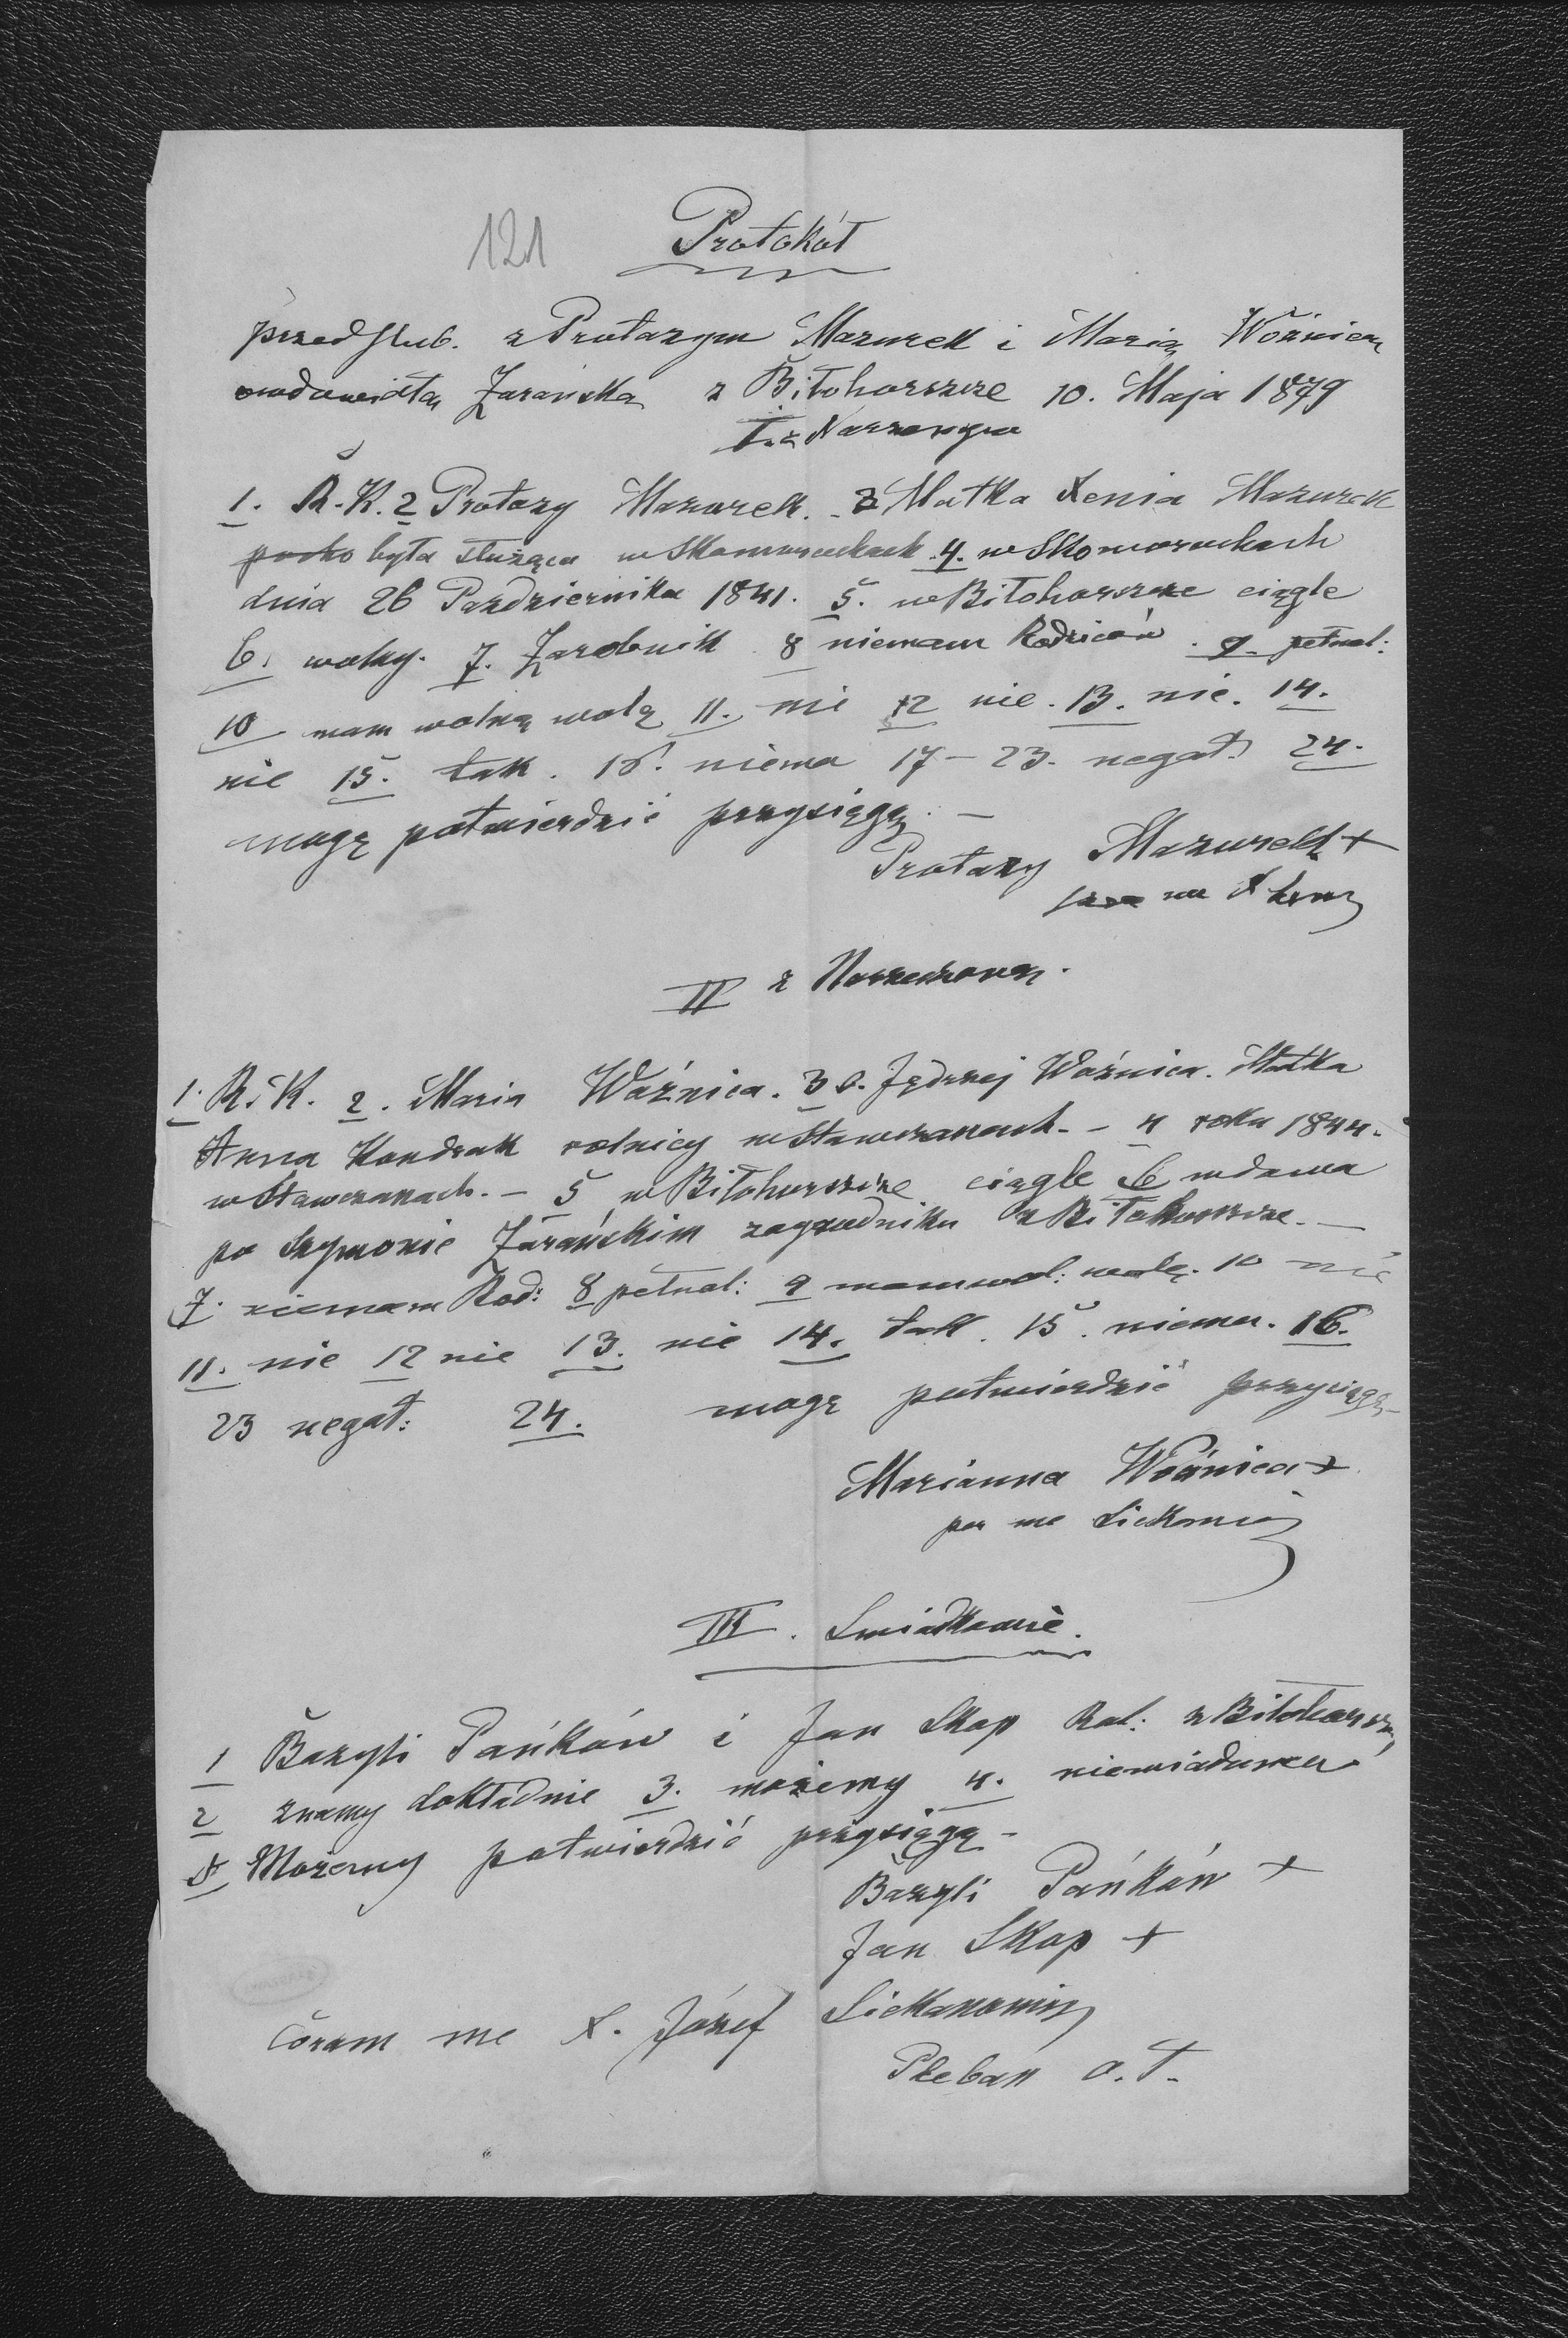 121
Protokół
przedślub. z Protazym Mazurek i Marią Woźnicą
owdowiałą Żarańską z Biłohorszcze 10. Maja 1879
I. z Narzenym
1. R.K. 2 Protazy Mazurek. 3 Matka Xenia Mazurek
była służąca w Skomorochach. 4. w Skomorochach
dnia 26 Pazdziernika 1841. 5. w Biłohorszcze ciągle
6. wolny. 7. Zarobnik 8 niemam Rodziców. 9. pełnol:
10 mam wolną wolą 11. nie 12 nie. 13. nie. 14.
nie 15. tak. 16. niema 17-23. negat. 24.
mogę potwierdzić przysięgą. —
Protazy Mazurek +
II z Narzeczoną.
1. R.K. 2. Maria Woźnica. 3 O. Jędrzej Woźnica. Matka
Anna Kondrak rolnicy w Stawczanach. - 4 roku 1844.
w Stawczanach. - 5 w Biłohorszcze ciągle 6 wdowa
po Szymonie Żarańskim zagrodniku z Biłohorszcze. —
7. niemam Rod: 8 pełnol: 9 mam wol: wolę. 10 nie
11. nie 12 nie 13. nie 14. tak. 15. niema. 16.
23 negat: 24. mogę potwierdzić przysięgą-
Marianna Woźnica +
per me
III. Swiadkowie.
1 Bazyli Pańków i Jan Skop Rol: z Biłohorszcz
2 znamy dokładnie 3. możemy 4. niewiadoma
5 Możemy potwierdzić przysięgą -
Bazyli Pańków +
Jan Skop +
Coram me X. Józef
Pleban o.ł.